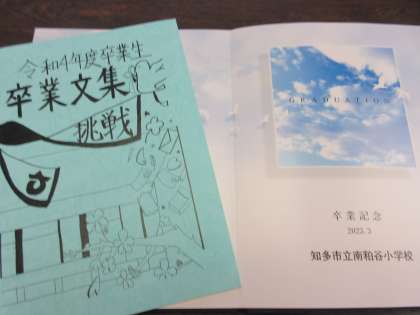 令和4年度卒業生
卒業文集
挑戦
GRADUATION
卒業記念
2023.3
知多市立南粕谷小学校